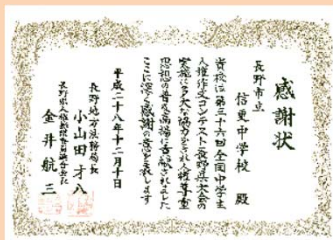 感謝状
長野市立
信更中学校 殿
貴校は第三十六回全国中学生
人権作文コンテスト長野県大会の
実施に多大な協力をされ人権尊重
思想の普及高揚に貢献されました
ここに深く感謝の意を表します
平成二十八年十二月十日
長野地方法務局長
小山田才八
長野県人権擁護委員連合会長
金井航三